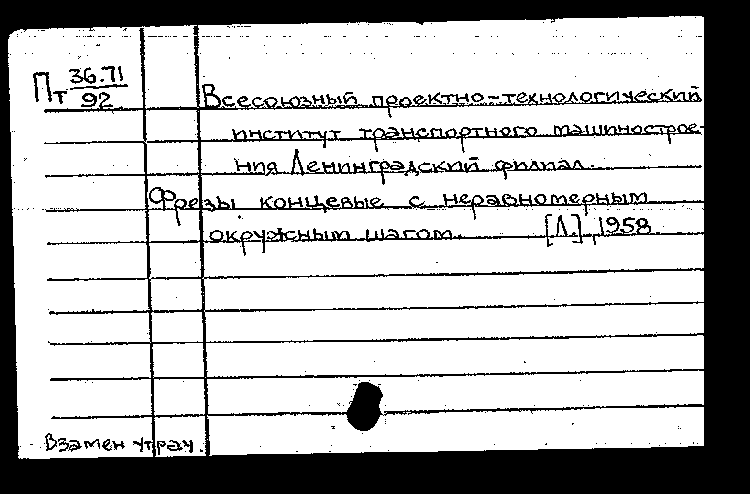 Пт 36.71
92
Всесоюзный проектно-технологический
институт транспортного машинострое-
ния Ленинградский филиал.
Фрезы концевые с неравномерным
окружным шагом. [Л.], 1958
Взамен утрач.